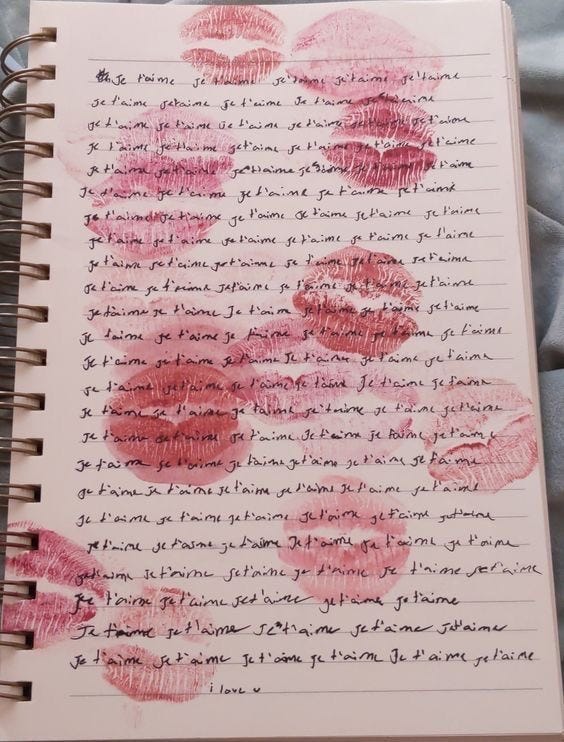 Je t'aime je t'aime je t'aime je t'aime je t'aime
je t'aime je t'aime je t'aime Je t'aime je t'aime
je t'aime je t'aime je t'aime je t'aime je t'aime je t'aime
je t'aime je t'aime je t'aime je t'aime je t'aime je t'aime
je t'aime je t'aime je t'aime je t'aime je t'aime je t'aime
Je t'aime je t'aime je t'aime je t'aime je t'aime
je t'aime je t'aime je t'aime je t'aime je t'aime je t'aime
je t'aime je t'aime je t'aime je t'aime je t'aime je t'aime
je t'aime je t'aime je t'aime je t'aime je t'aime je t'aime
je t'aime je t'aime je t'aime je t'aime je t'aime je t'aime
je t'aime je t'aime Je t'aime je t'aime je t'aime je t'aime
je t'aime je t'aime je t'aime je t'aime je t'aime je t'aime
je t'aime je t'aime je t'aime Je t'aime je t'aime je t'aime
je t'aime je t'aime je t'aime je t'aime Je t'aime je t'aime
je t'aime je t'aime je t'aime je t'aime je t'aime je t'aime
je t'aime je t'aime je t'aime Je t'aime je t'aime je t'aime
je t'aime je t'aime je t'aime je t'aime je t'aime je t'aime
je t'aime je t'aime je t'aime je t'aime je t'aime je t'aime
je t'aime je t'aime je t'aime je t'aime je t'aime je t'aime
je t'aime je t'aime je t'aime Je t'aime je t'aime je t'aime
je t'aime je t'aime je t'aime je t'aime je t'aime je t'aime
je t'aime je t'aime je t'aime je t'aime je t'aime
Je t'aime je t'aime je t'aime je t'aime je t'aime
je t'aime je t'aime je t'aime je t'aime Je t'aime je t'aime
i love u